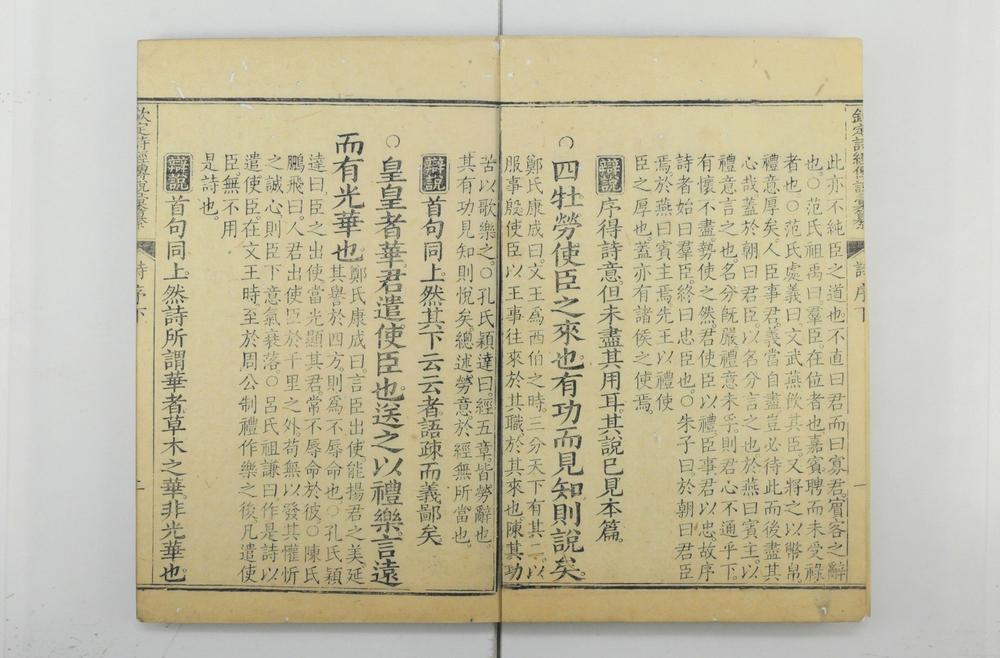 此亦不純臣之道也不直曰君而曰寡君賓客之辭
也○范氏祖禹曰羣臣在位者也嘉賓聘而未受祿
者也○范氏處義曰文武燕飲其臣又將之以幣帛
禮意厚矣人臣事君義當自盡豈必待此而後盡其
心哉蓋於朝曰君臣以名分言之也於燕曰賓主以
禮意言之也名分旣嚴禮意未孚則君心不通乎下
有懷不盡勢使之然君使臣以禮臣事君以忠故序
詩者始曰羣臣終曰忠臣也○朱子曰於朝曰君臣
焉於燕曰賓主焉先王以禮使
臣之厚也蓋亦有諸侯之使焉
辯說 序得詩意但未盡其用耳其說已見本篇
○四牡勞使臣之來也有功而見知則說矣
鄭氏康成曰文王爲西伯之時三分天下有其二以
服事殷使臣以王事往來於其職於其來也陳其功
苦以歌樂之○孔氏穎達曰經五章皆勞辭也
其有功見知則悅矣總述勞意於經無所當也
辯說 首句同上然其下云云者語疎而義鄙矣
○皇皇者華君遣使臣也送之以禮樂言遠
而有光華也 鄭氏康成曰言臣出使能揚君之美延
其譽於四方則爲不辱命也○孔氏穎
達曰臣之出使當光顯其君常不辱命於彼○陳氏
鵬飛曰人君出使臣於千里之外苟無以發其懽忻
之誠心則臣下意氣衰落○呂氏祖謙曰作是詩以
遣使臣在文王時至於周公制禮作樂之後凡遣使
臣無不用
是詩也
辯說 首句同上然詩所謂華者草木之華非光華也
欽定詩經傳說彙纂
詩序下
一
欽定詩經傳說彙纂
詩序下
二